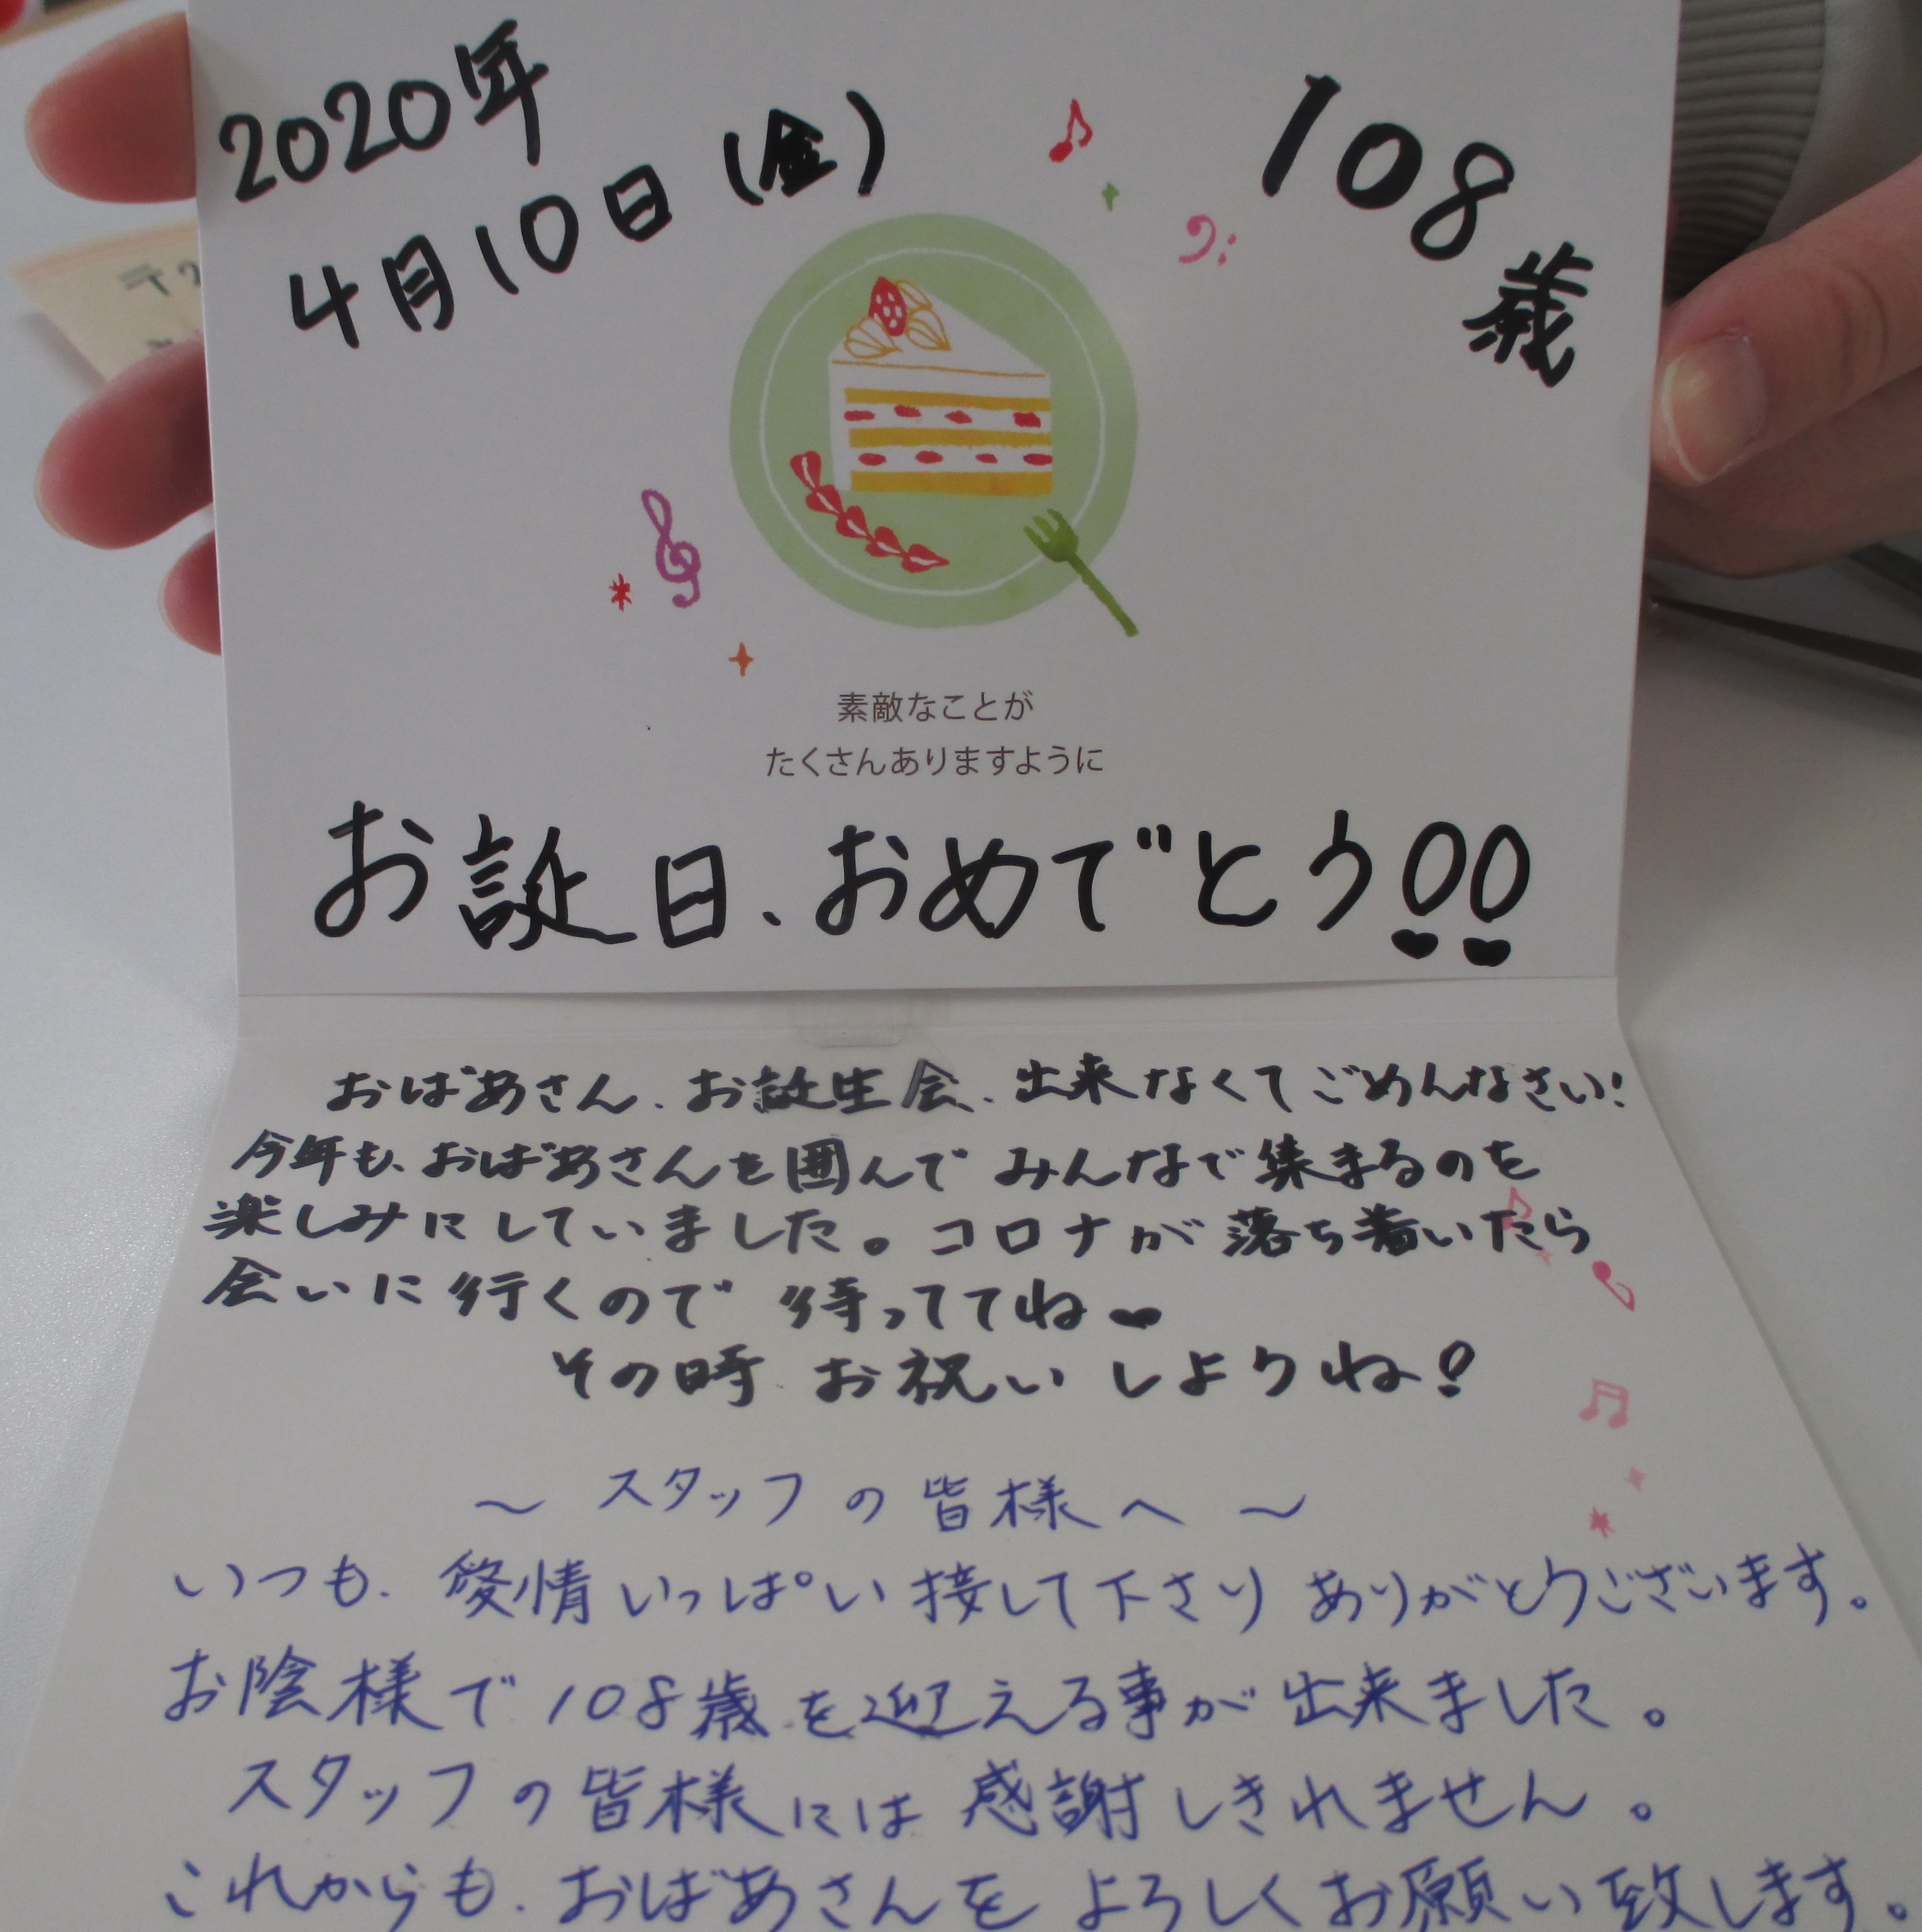 2020年
4月10日(金)
108歳
素敵なことが
たくさんありますように
お誕日、おめでとう!!
おばあさん、お誕生会、出来なくてごめんなさい!
今年も、おばあさんを囲んでみんなで集まるのを
楽しみにしていました。コロナが落ち着いたら
会いに行くので待っててね♥
その時お祝いしようね!
〜スタッフの皆様へ〜
いつも、愛情いっぱい接して下さりありがとうございます。
お陰様で108歳を迎える事が出来ました。
スタッフの皆様には感謝しきれません。
これからも、おばあさんをよろしくお願い致します。